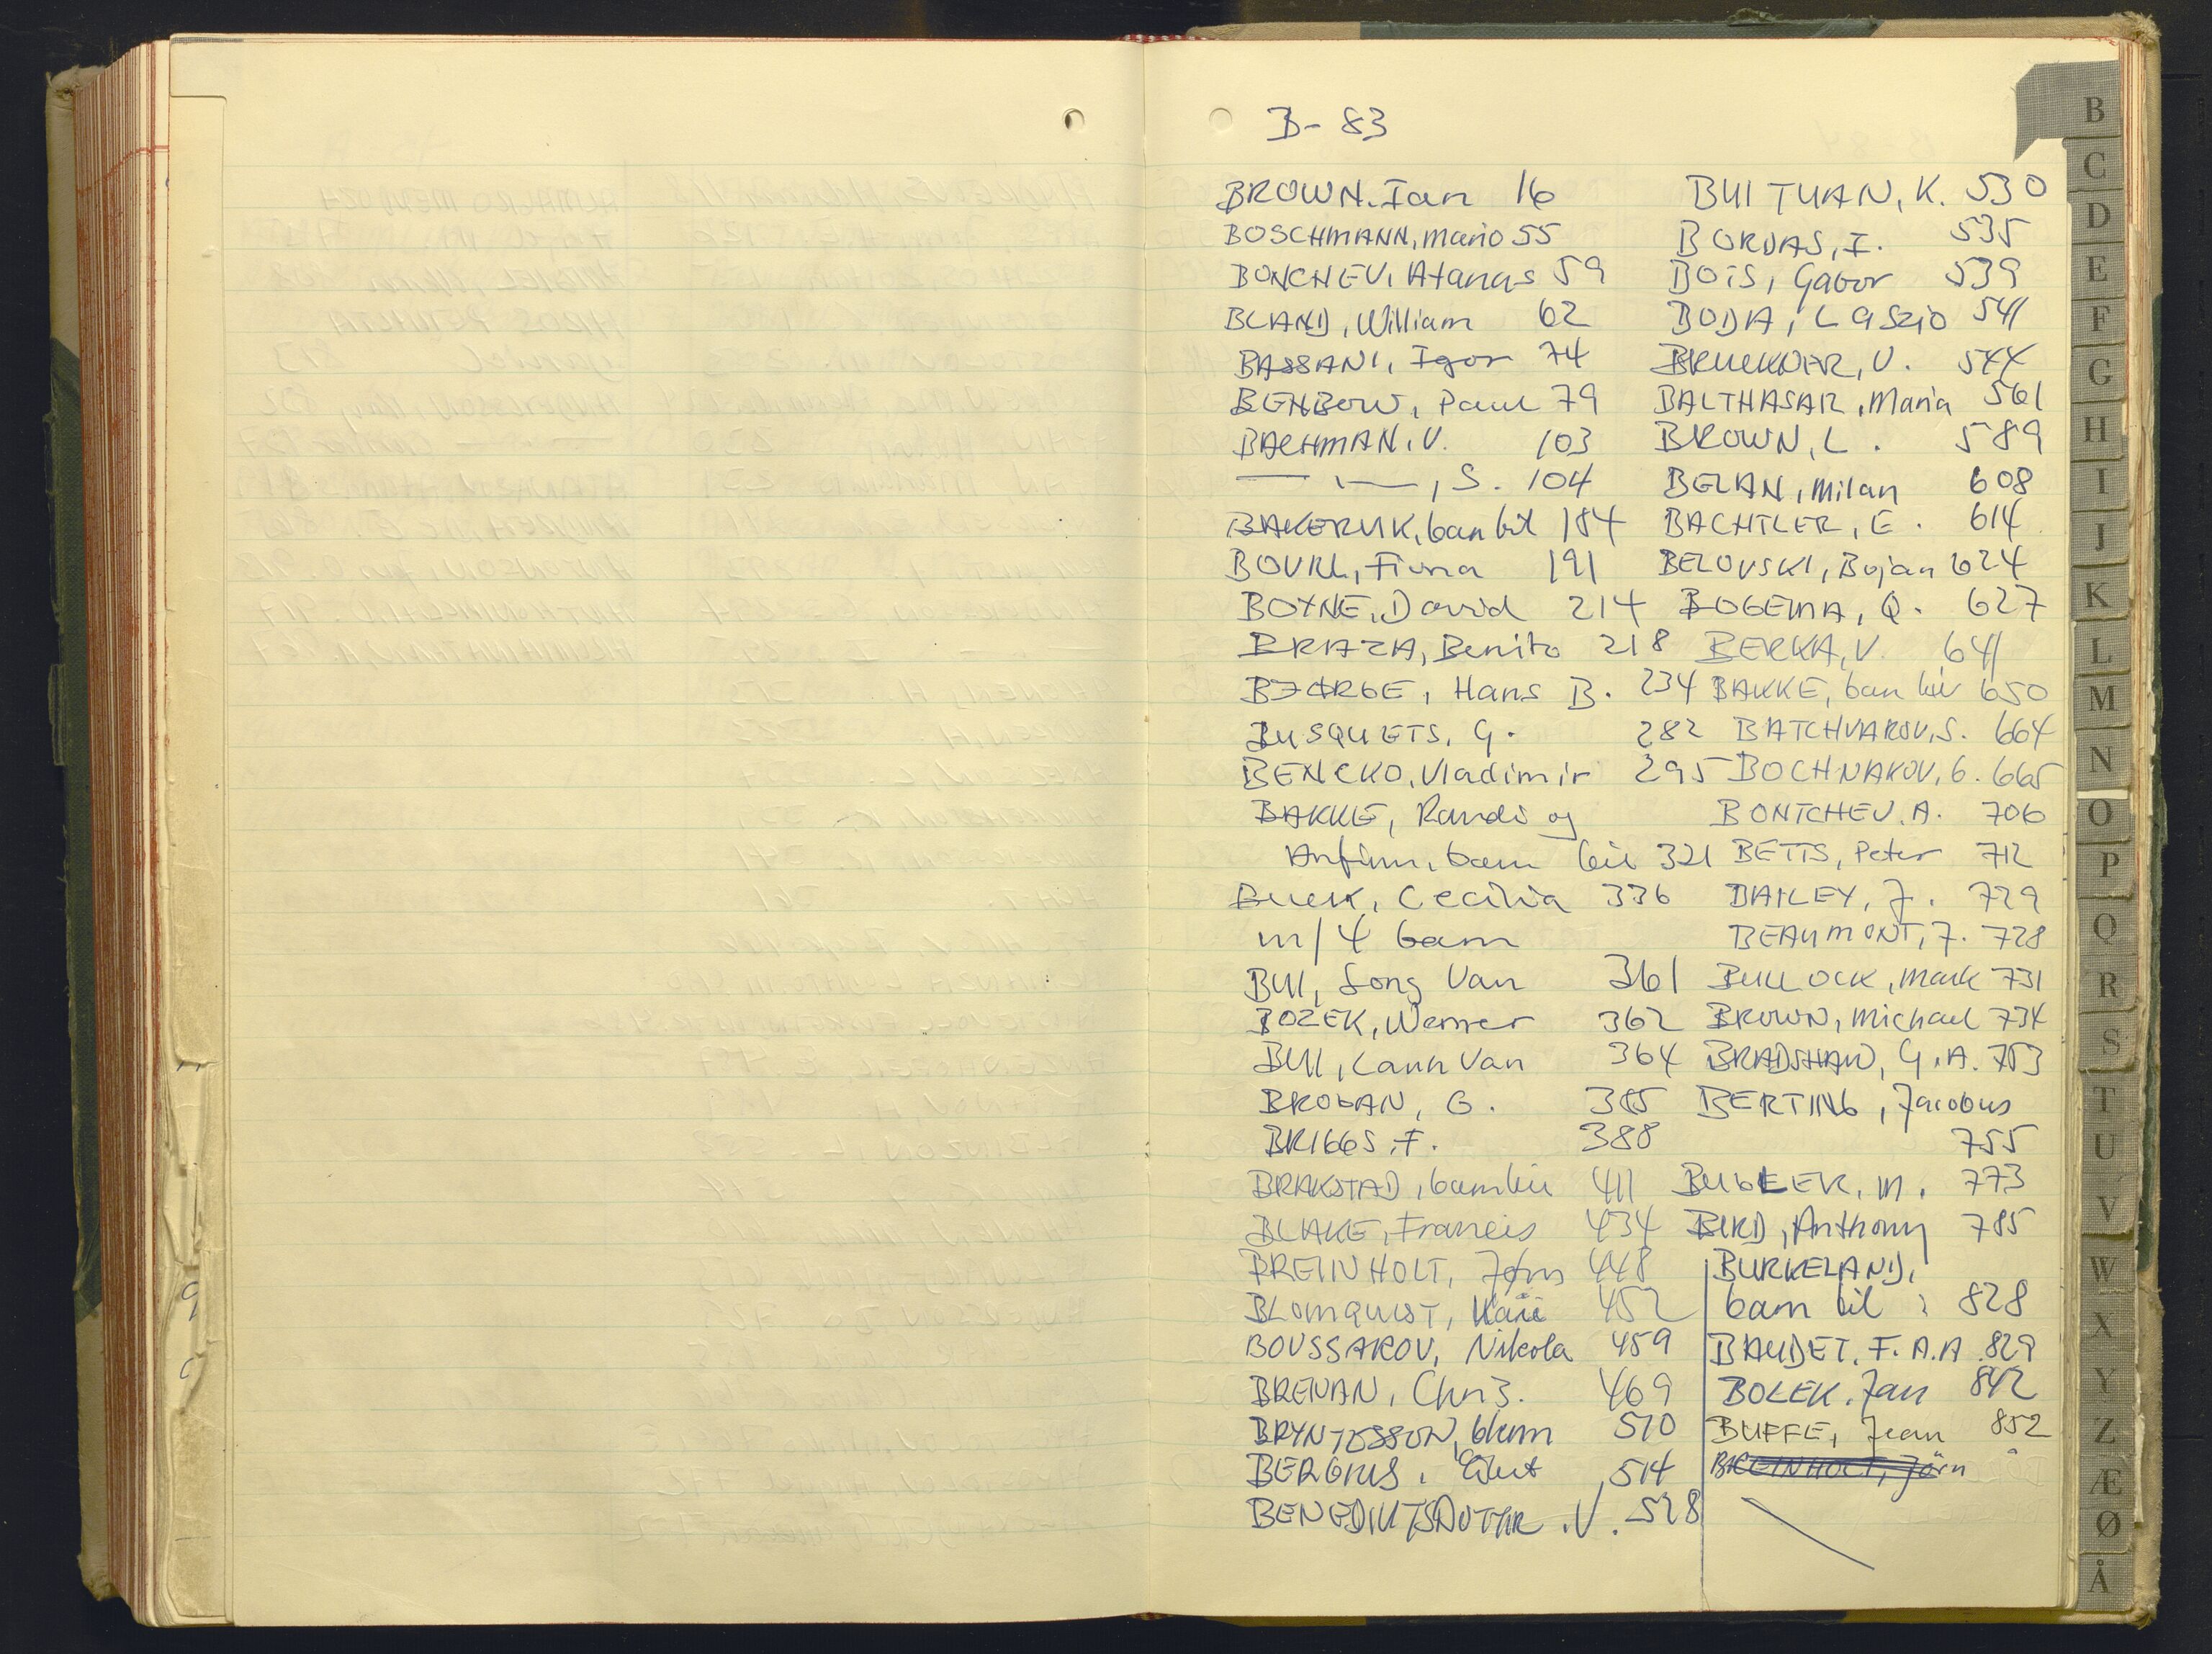 B- 83
BROWN. Ian 16
BOSCHMANN, Mario 55
BONCHEV, Atanas 59
BLAND, William 62
BASSANI, Igor 74
BENBOW, Paul 79
BACHMAN, V. 103
— " —, S. 104
BAKERVIK, barn til 184
BOURL, Fiona 191
BOYNE, David 214
BRAZA, Benito 218
BJØRGE, Hans B. 234
BUSQUETS, G. 282
BENCKO, Vladimir 295
BAKKE, Randi og
Anfinn, barn til 321
BUCK, Cecilia 336
m/ 4 barn
BUI, Song Van 361
BOZEK, Werner 362
BUI, Lanh Van 364
BROGAN, G. 385
BRIGGS, F. 388
BRAKSTAD, barn til 411
BLAKE, Francis 434
BREINHOLT, Jørn 448
BLOMQUIST, 452
BOUSSAKOV, Nikola 459
BRENAN, Chris. 469
BRYNTESSON, Glenn 510
BERGIUS, 514
BENEDIKTSDOTTIR, V. 528
BUI TUAN, K. 530
BORDAS, I. 535
BOIS, Gabor 539
BODA, Laszio 541
BRUCKNER, V. 544
BALTHASAR, Maria 561
BROWN, L. 589
BELAN, Milan 608
BACHTLER, E. 614
BELOVSKI, Bojan 624
BOGEMA, Q. 627
BERKA, V. 641
BAKKE, barn til 650
BATCHVAROV, S. 664
BOCHNAKOV, G. 665
BONTCHEV. A. 706
BETTS, Peter 712
BAILEY, J. 729
BEAUMONT, J. 728
BULLOCK, Mark 731
BROWN, Michael 734
BRADSHAW, G.A. 753
BERTING, Jacobus
755
BUGLER, M. 773
BIRD, Anthony 785
BURKELAND,
barn til : 828
BAUDET, F. A.A. 829
BOLEK. Jan 842
BUFFE, Jean 852
BREINHOLT, Jörn
B
C
D
E
F
G
H
I
J
K
L
M
N
O
P
Q
R
S
T
U
V
W
X
Y
Z
Æ
Ø
Å